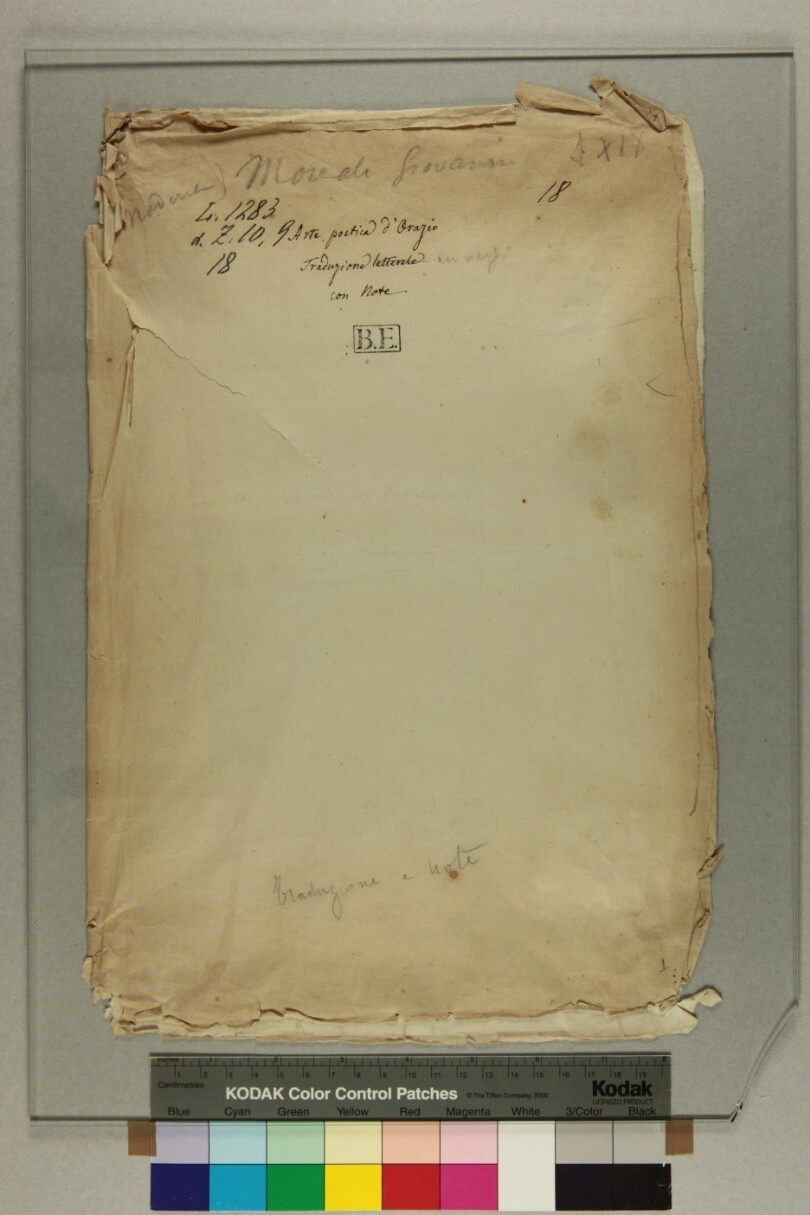 Giovanni
18
L. 1283
α. Z. 10, 9 Arte poetica d'Orazio
18 Traduzione letterale in versi
con Note
B.E.
Traduzione e note
inches 1 2 3 4 5 6 7 8
Centimetres 1 2 3 4 5 6 7 8 9 10 11 12 13 14 15 16 17 18 19
KODAK Color Control Patches © The Tiffen Company, 2000 Kodak
LICENSED PRODUCT
Blue Cyan Green Yellow Red Magenta White 3/Color Black